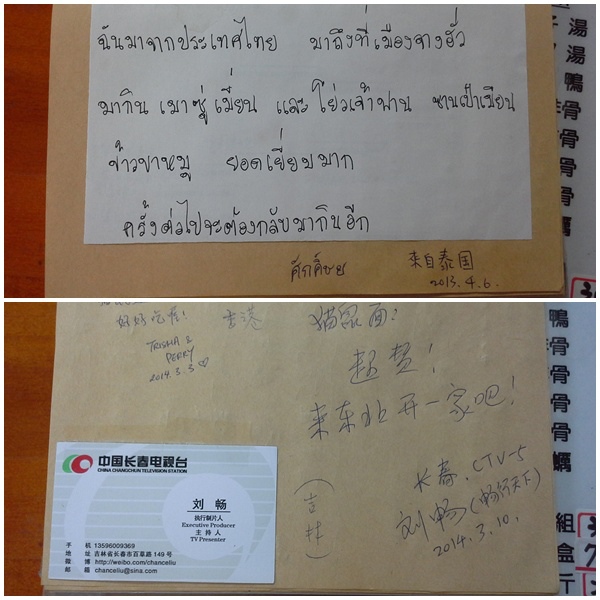 ฉันมาจากประเทศไทย มาถึงที่เมืองจางฮั่ว
มากิน เมาซู่เมี่ยน และ โย่วเจ้าฟาน ซานเป่าเมียน
ข้าวขาหมู ยอดเยี่ยมมาก
ครั้งต่อไปจะต้องกลับมากินอีก
來自泰国
2013.4.6.
湯
湯
鴨
骨
骨
骨
骨
蠣
好好吃喔!
香港
TRISHA &
PERRY
2014.3.3 ♡
猫鼠面:
超赞!
来东北开一家吧!
(吉林)
长春.CTV-5
刘畅(畅行天下)
2014.3.10.
中国长春电视台
CHINA CHANGCHUN TELEVISION STATION
刘 畅
执行制片人
Executive Producer
主 持 人
TV Presenter
手 机 13596009369
地 址 吉林省长春市百草路 149 号
微 博 http://weibo.com/chanceliu
邮 箱 chanceliu@sina.com
鴨
骨
骨
骨
蠣
組
盒
斤